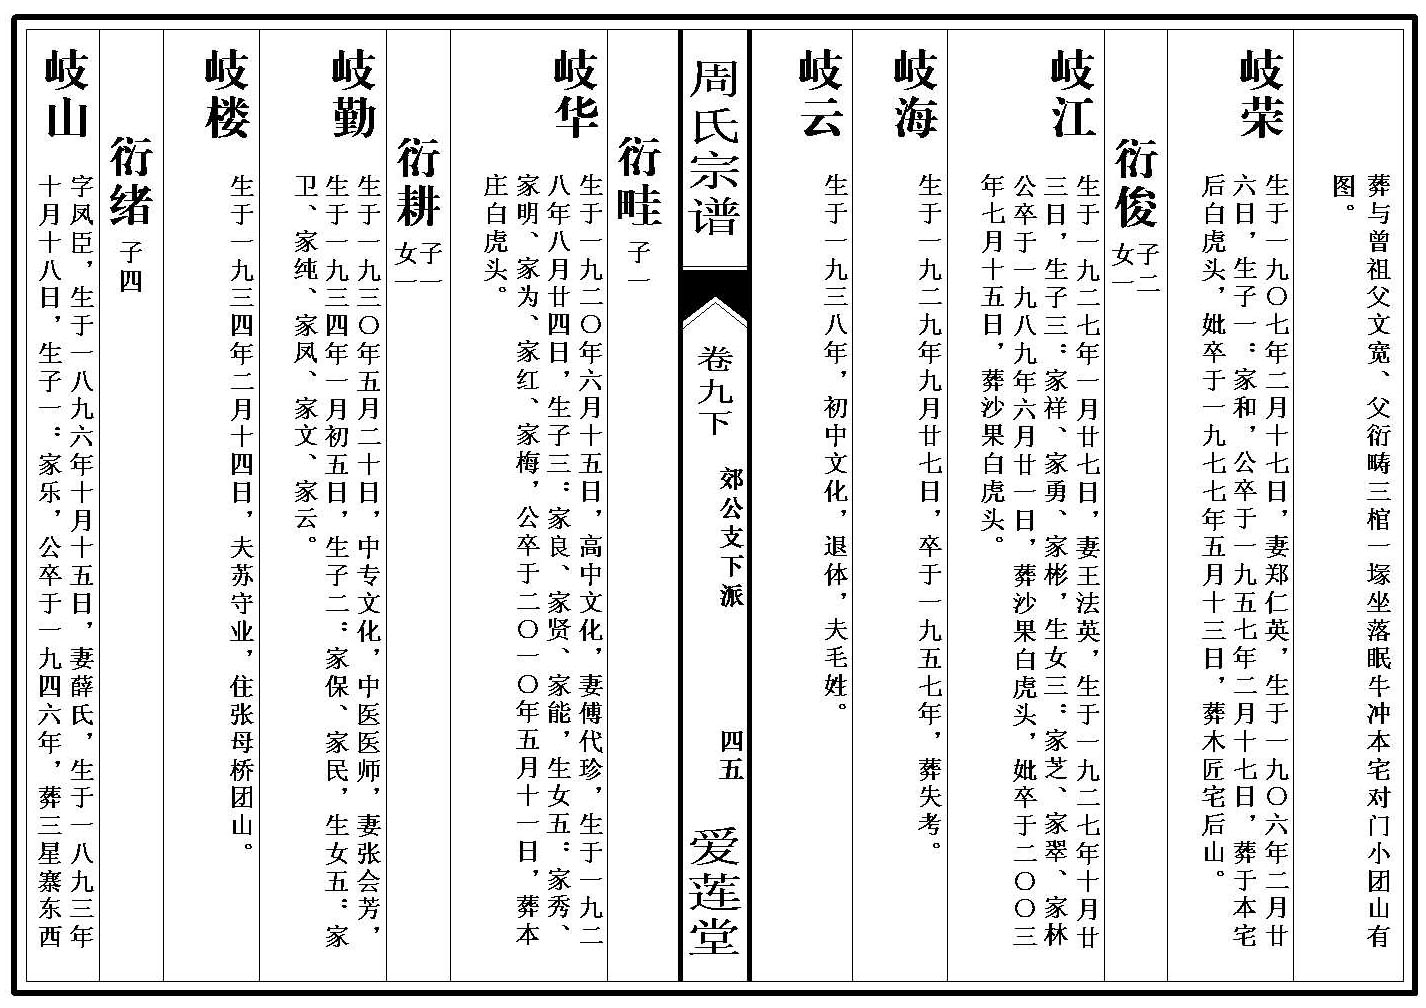 葬与曾祖父文宽、父衍畴三棺一塚坐落眠牛冲本宅对门小团山有
图。
岐荣
生于一九〇七年二月十七日，妻郑仁英，生于一九〇六年二月廿
六日，生子一：家和，公卒于一九五七年二月十七日，葬于本宅
后白虎头，妣卒于一九七七年五月十三日，葬木匠宅后山。
衍俊
子二
女一
岐江
生于一九二七年一月廿七日，妻王法英，生于一九二七年十月廿
三日，生子三：家祥、家勇、家彬，生女三：家芝、家翠、家林
公卒于一九八九年六月廿一日，葬沙果白虎头，妣卒于二〇〇三
年七月十五日，葬沙果白虎头。
岐海
生于一九二九年九月廿七日，卒于一九五七年，葬失考。
岐云
生于一九三八年，初中文化，退休，夫毛姓。
周氏宗谱
卷九下
郊公支下派
四五
爱莲堂
衍畦
子一
岐华
生于一九二〇年六月十五日，高中文化，妻傅代珍，生于一九二
八年八月廿四日，生子三：家良、家贤、家能，生女五：家秀、
家明、家为、家红、家梅，公卒于二〇一〇年五月十一日，葬本
庄白虎头。
衍耕
子一
女一
岐勤
生于一九三〇年五月二十日，中专文化，中医医师，妻张会芳，
生于一九三四年一月初五日，生子二：家保、家民，生女五：家
卫、家纯、家凤、家文、家云。
岐楼
生于一九三四年二月十四日，夫苏守业，住张母桥团山。
衍绪
子四
岐山
字凤臣，生于一八九六年十月十五日，妻薛氏，生于一八九三年
十月十八日，生子一：家乐，公卒于一九四六年，葬三星寨东西